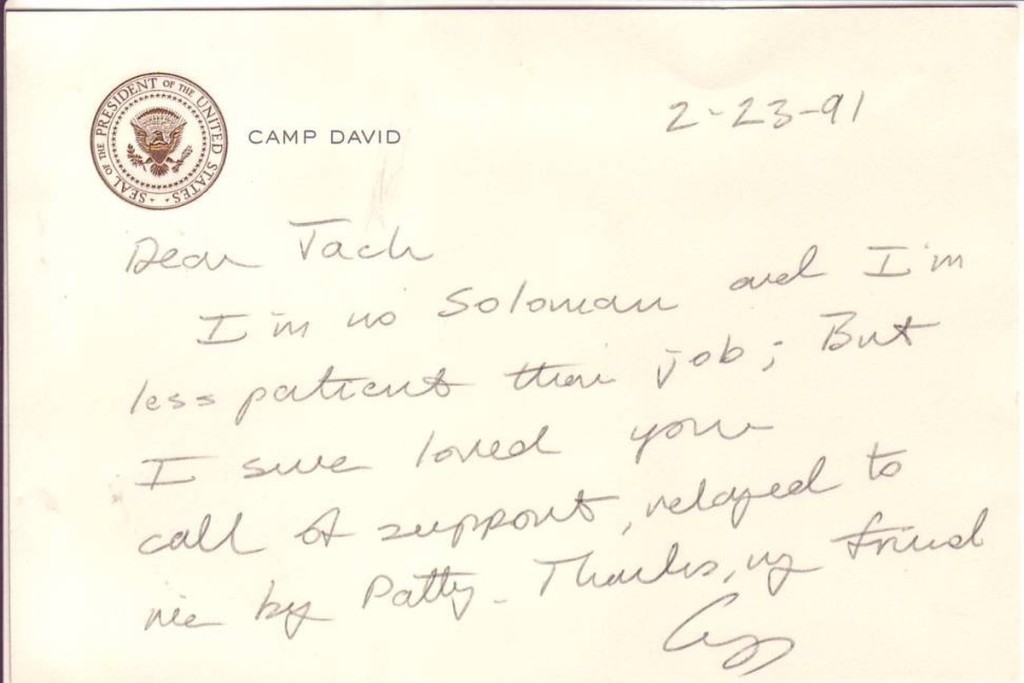 SEAL OF THE PRESIDENT OF THE UNITED STATES
CAMP DAVID
2-23-91
Dear Jack
I'm no Soloman and I'm
less patient than job; But
I sure loved your
call of support, relayed to
me by Patty. Thanks, my friend